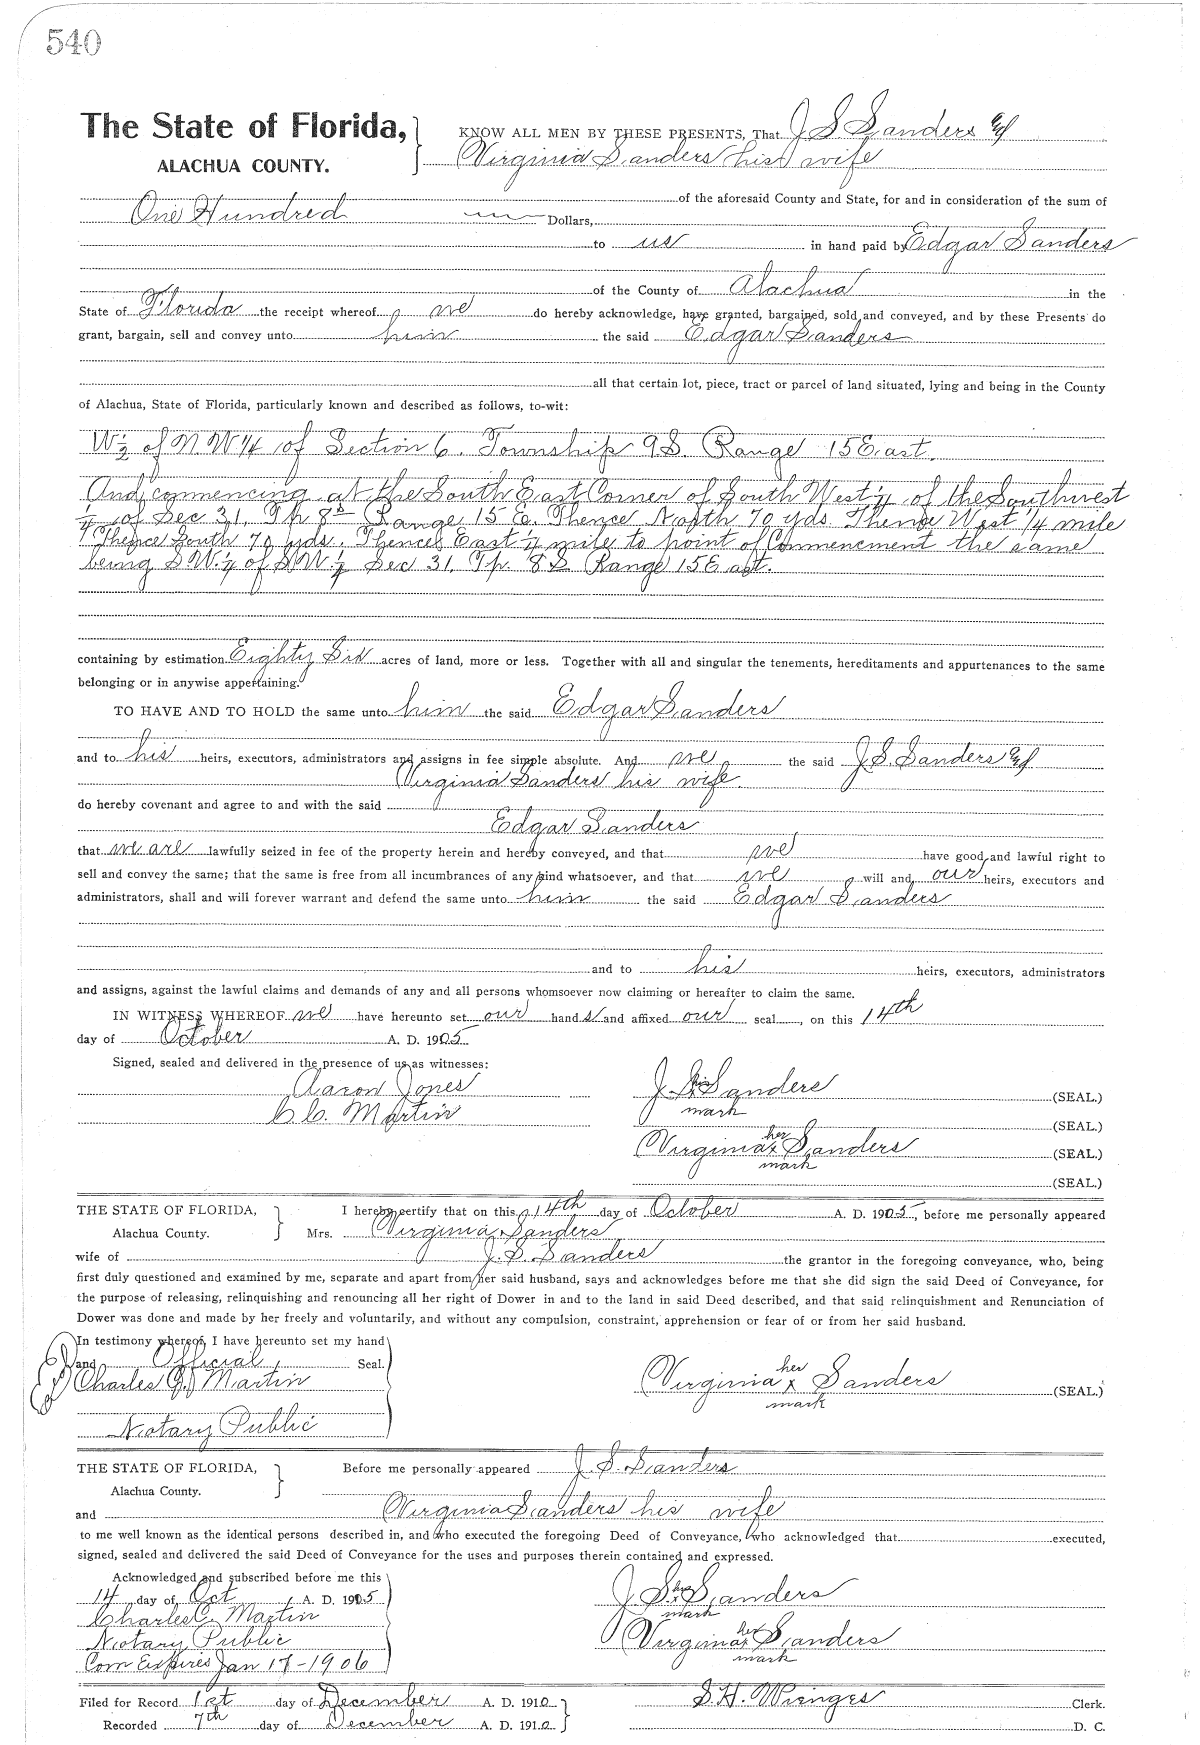 540
The State of Florida,
ALACHUA COUNTY.
KNOW ALL MEN BY THESE PRESENTS, That J S Sanders and
Virginia Sanders his wife
of the aforesaid County and State, for and in consideration of the sum of
One Hundred Dollars,
to us in hand paid by Edgar Sanders
of the County of Alachua in the
State of Florida the receipt whereof we do hereby acknowledge, have granted, bargained, sold and conveyed, and by these Presents do
grant, bargain, sell and convey unto him the said Edgar Sanders
all that certain lot, piece, tract or parcel of land situated, lying and being in the County
of Alachua, State of Florida, particularly known and described as follows, to-wit:
W½ of N W¼ of Section 6. Township 9S. Range 15 East.
And commencing at the South East Corner of South West ¼ of the Southwest
¼ of Sec 31, Tp 8S Range 15 E. Thence North 70 yds. Thence West ¼ mile
Thence South 70 yds. Thence East ¼ mile to point of Commencment the same
being S W.¼ of S W.¼ Sec 31, Tp. 8S Range 15 East.
containing by estimation Eighty Six acres of land, more or less. Together with all and singular the tenements, hereditaments and appurtenances to the same
belonging or in anywise appertaining.
TO HAVE AND TO HOLD the same unto him the said Edgar Sanders
and to his heirs, executors, administrators and assigns in fee simple absolute. And we the said J.S. Sanders and
Virginia Sanders his wife.
do hereby covenant and agree to and with the said
Edgar Sanders
that we are lawfully seized in fee of the property herein and hereby conveyed, and that we have good and lawful right to
sell and convey the same; that the same is free from all incumbrances of any kind whatsoever, and that we will and our heirs, executors and
administrators, shall and will forever warrant and defend the same unto him the said Edgar Sanders
and to his heirs, executors, administrators
and assigns, against the lawful claims and demands of any and all persons whomsoever now claiming or hereafter to claim the same.
IN WITNESS WHEREOF we have hereunto set our hands and affixed our seal, on this 14th
day of October A. D. 1905.
Signed, sealed and delivered in the presence of us as witnesses:
Aaron Jones
C. C. Martin
J. S. his x mark Sanders (SEAL.)
(SEAL.)
Virginia her x mark Sanders (SEAL.)
(SEAL.)
THE STATE OF FLORIDA,
Alachua County.
I hereby certify that on this 14th day of October A. D. 1905, before me personally appeared
Mrs. Virginia Sanders
wife of J. S. Sanders the grantor in the foregoing conveyance, who, being
first duly questioned and examined by me, separate and apart from her said husband, says and acknowledges before me that she did sign the said Deed of Conveyance, for
the purpose of releasing, relinquishing and renouncing all her right of Dower in and to the land in said Deed described, and that said relinquishment and Renunciation of
Dower was done and made by her freely and voluntarily, and without any compulsion, constraint, apprehension or fear of or from her said husband.
In testimony whereof, I have hereunto set my hand
and Official Seal.
Charles C. Martin
Notary Public
Virginia her x mark Sanders (SEAL.)
THE STATE OF FLORIDA,
Alachua County.
Before me personally appeared J. S. Sanders
and Virginia Sanders his wife
to me well known as the identical persons described in, and who executed the foregoing Deed of Conveyance, who acknowledged that executed,
signed, sealed and delivered the said Deed of Conveyance for the uses and purposes therein contained and expressed.
Acknowledged and subscribed before me this
14 day of Oct A. D. 1905
Charles C. Martin
Notary Public
Com Expires Jan 17-1906
J S. his x mark Sanders
Virginia her x mark Sanders
Filed for Record 1st day of December A. D. 1910
Recorded 7th day of December A. D. 1910
S. H. Wienges Clerk.
D. C.